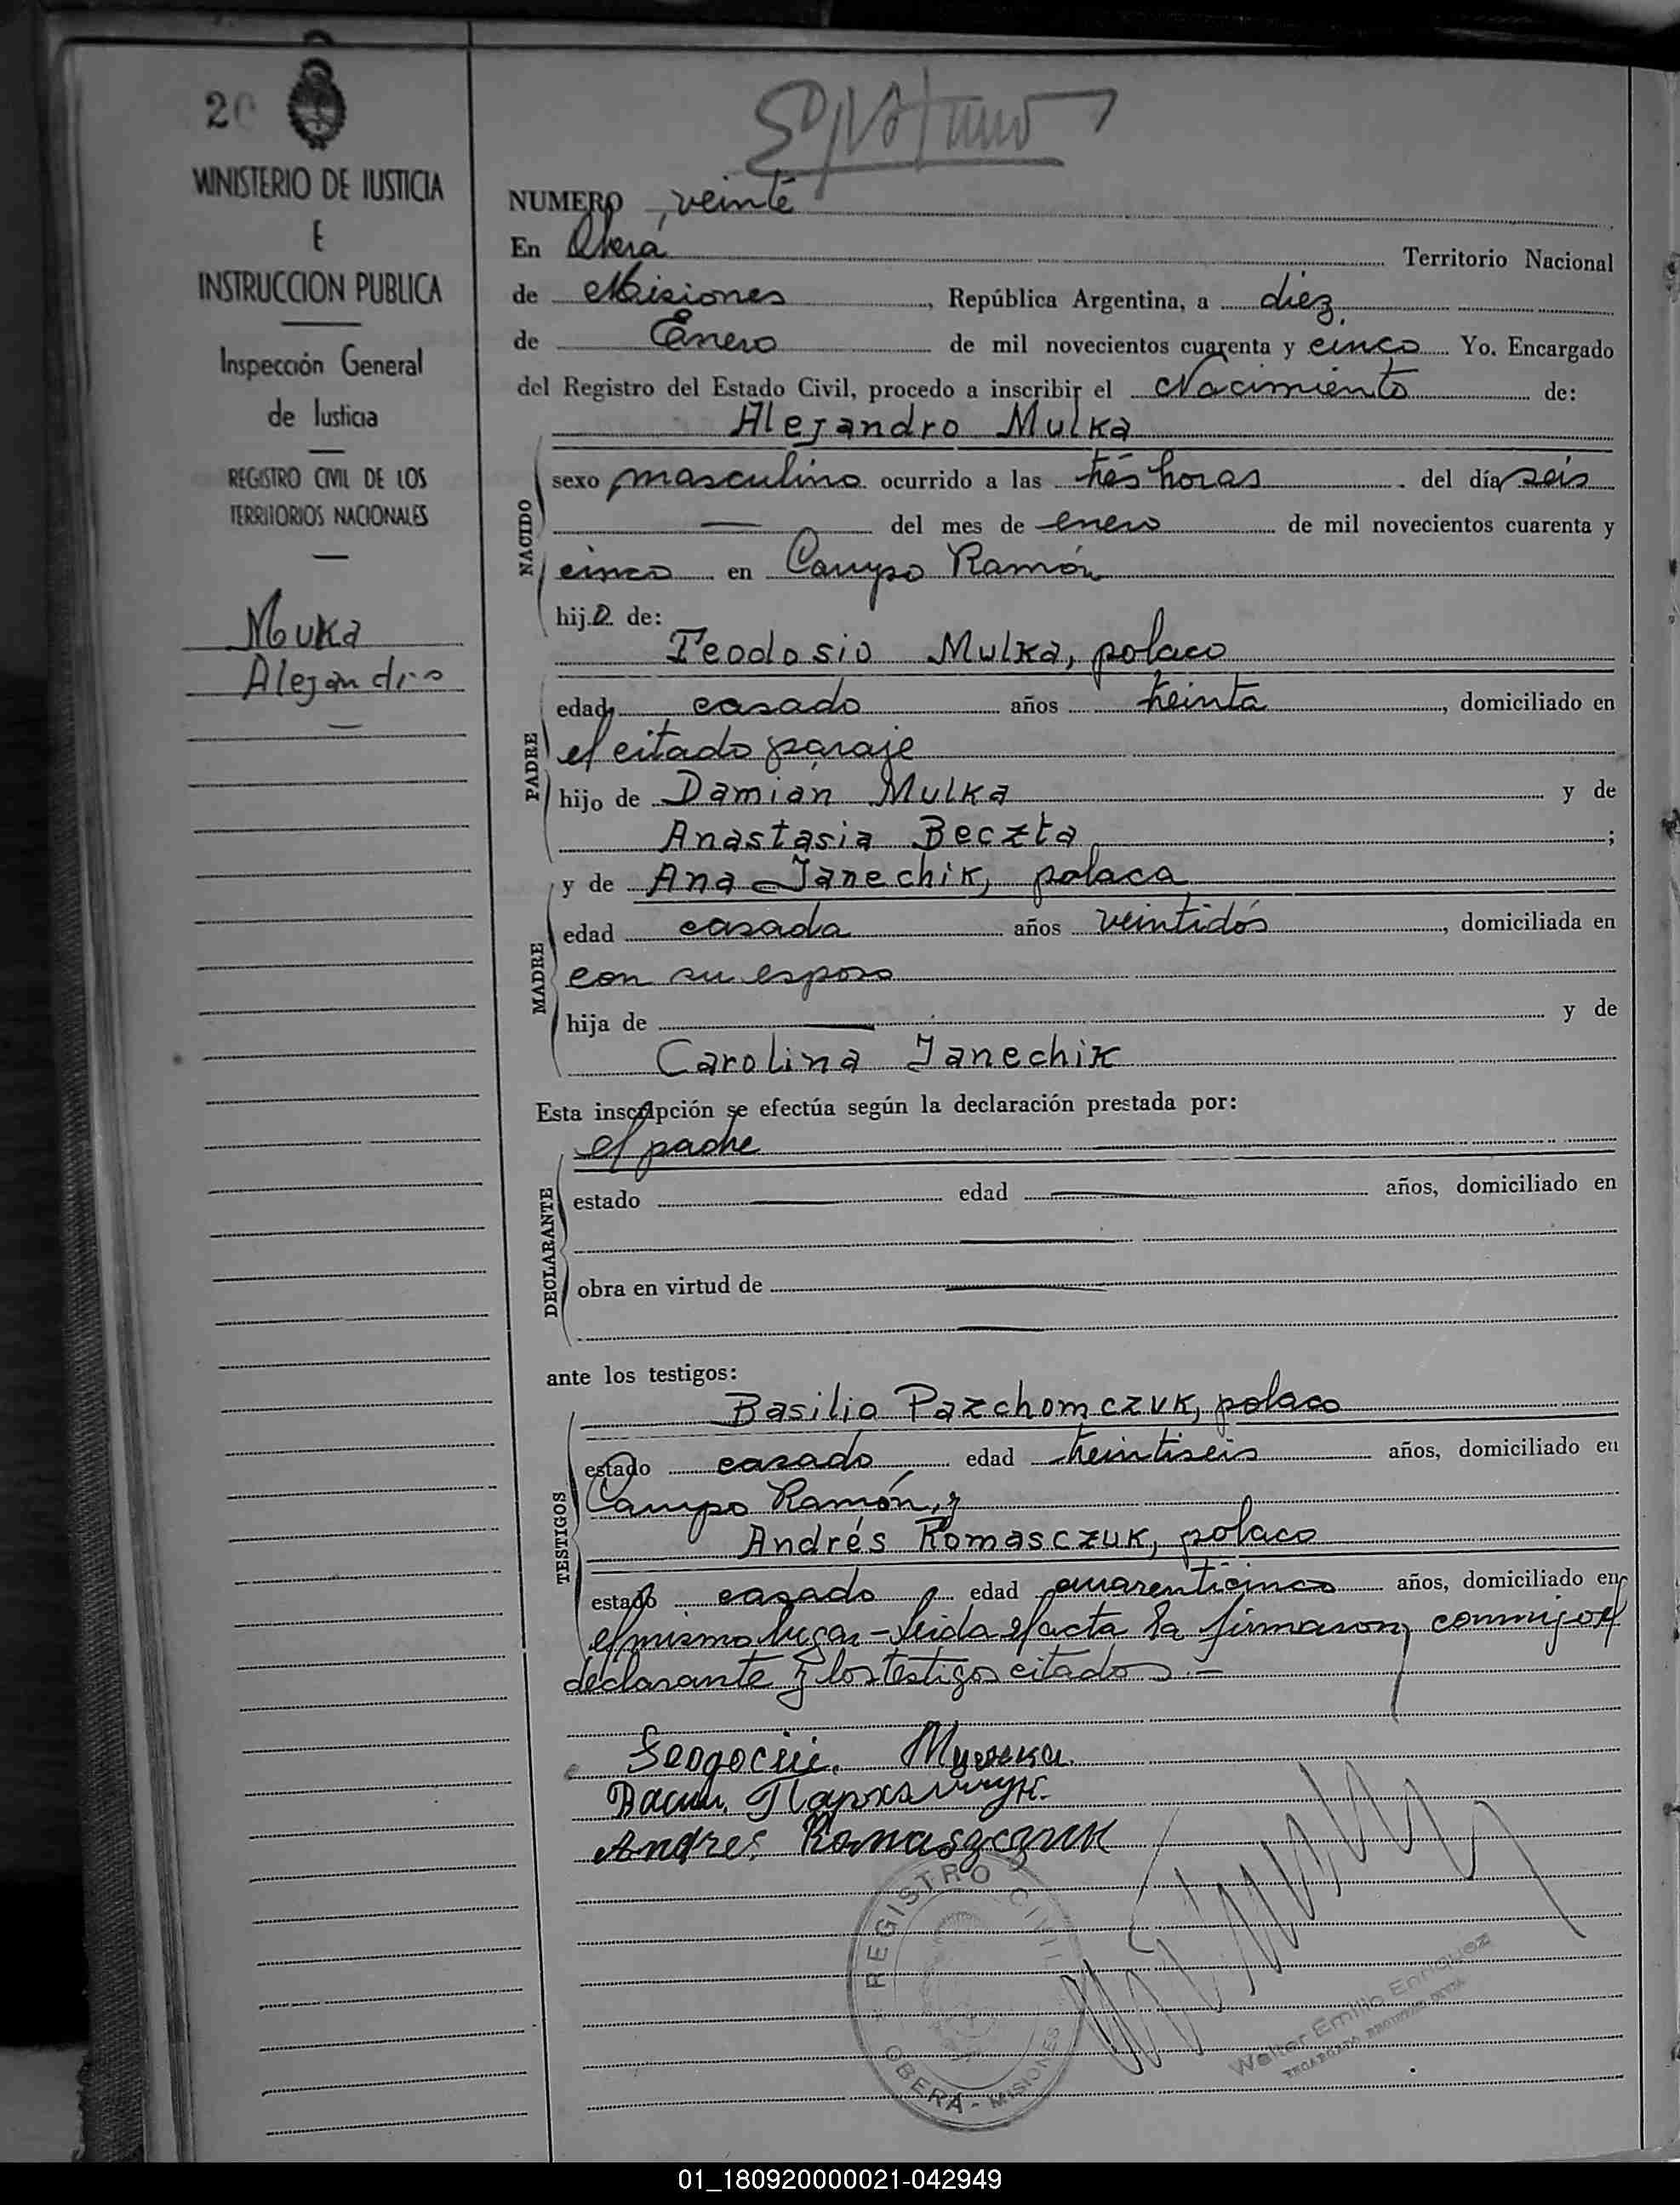 20
MINISTERIO DE JUSTICIA
E
INSTRUCCION PUBLICA
Inspección General
de Justicia
REGISTRO CIVIL DE LOS
TERRITORIOS NACIONALES
Muka
Alejandro
NUMERO veinte
En Oberá Territorio Nacional
de Misiones, República Argentina, a diez
de Enero de mil novecientos cuarenta y cinco Yo. Encargado
del Registro del Estado Civil, procedo a inscribir el Nacimiento de:
Alejandro Mulka
NACIDO
sexo masculino ocurrido a las trés horas del día seis
— del mes de enero de mil novecientos cuarenta y
cinco en Campo Ramón
hijo de:
Teodosio Mulka, polaco
PADRE
edad casado años treinta, domiciliado en
el citado paraje
hijo de Damián Mulka y de
Anastasia Beczta;
y de Ana Janechik, polaca
MADRE
edad casada años veintidós, domiciliada en
con su esposo
hija de — y de
Carolina Janechik
Esta inscripción se efectúa según la declaración prestada por:
el padre
DECLARANTE
estado — edad — años, domiciliado en
—
obra en virtud de —
—
ante los testigos:
Basilio Pazchomczuk, polaco
TESTIGOS
estado casado edad treintiseis años, domiciliado en
Campo Ramón, y
Andrés Romasczuk, polaco
estado casado edad cuarenticinco años, domiciliado en
el mismo lugar - Leida el acta la firmaron conmigo el
declarante y los testigos citados.-
Теодосий Мулька
Васил Пархомчук.
Andres Romaszczuk
REGISTRO CIVIL
OBERA - MISIONES
Walter Emilio Enriquez
01_180920000021-042949